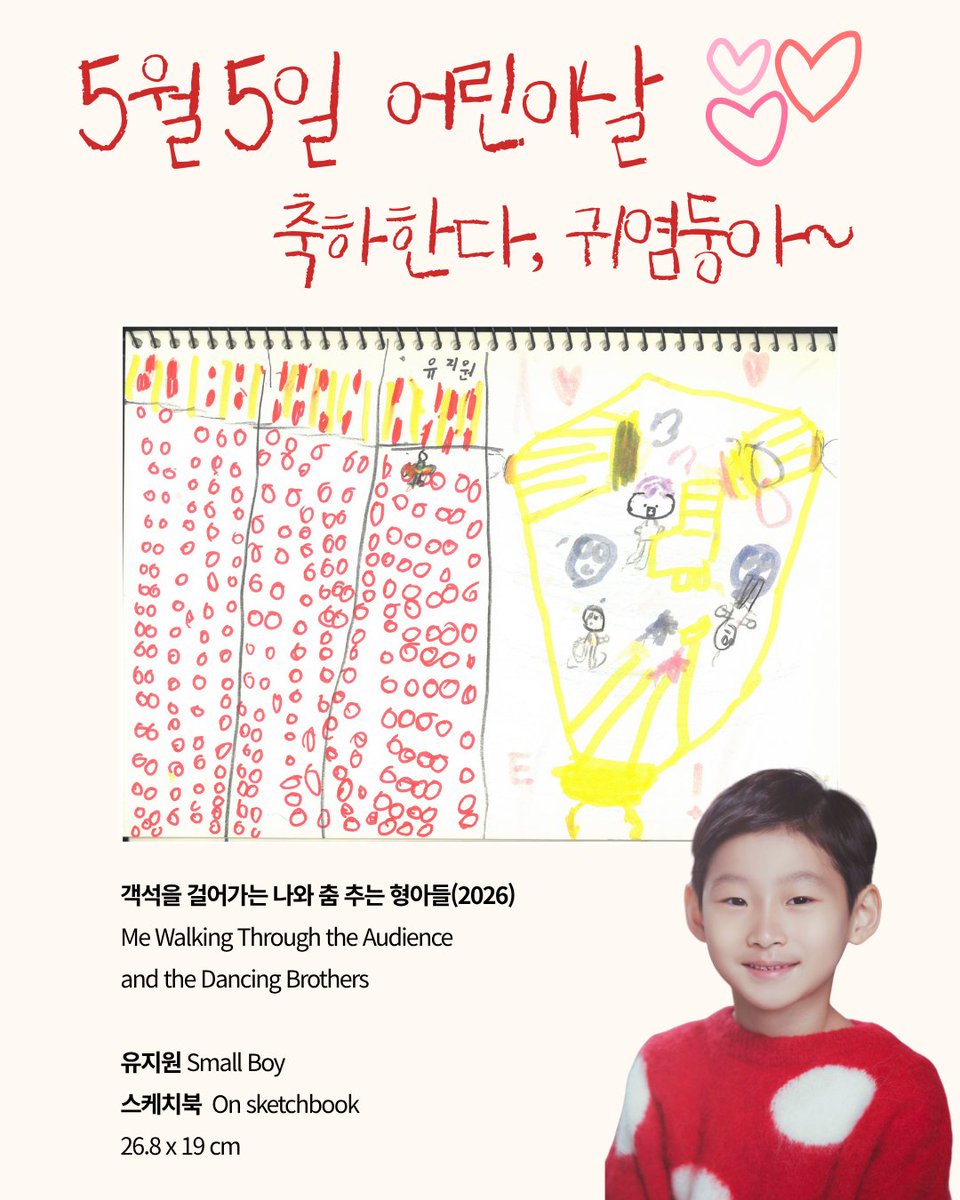 5월 5일 어린이날
축하한다, 귀염둥아~
유지원
객석을 걸어가는 나와 춤 추는 형아들(2026)
Me Walking Through the Audience
and the Dancing Brothers
유지원 Small Boy
스케치북 On sketchbook
26.8 x 19 cm